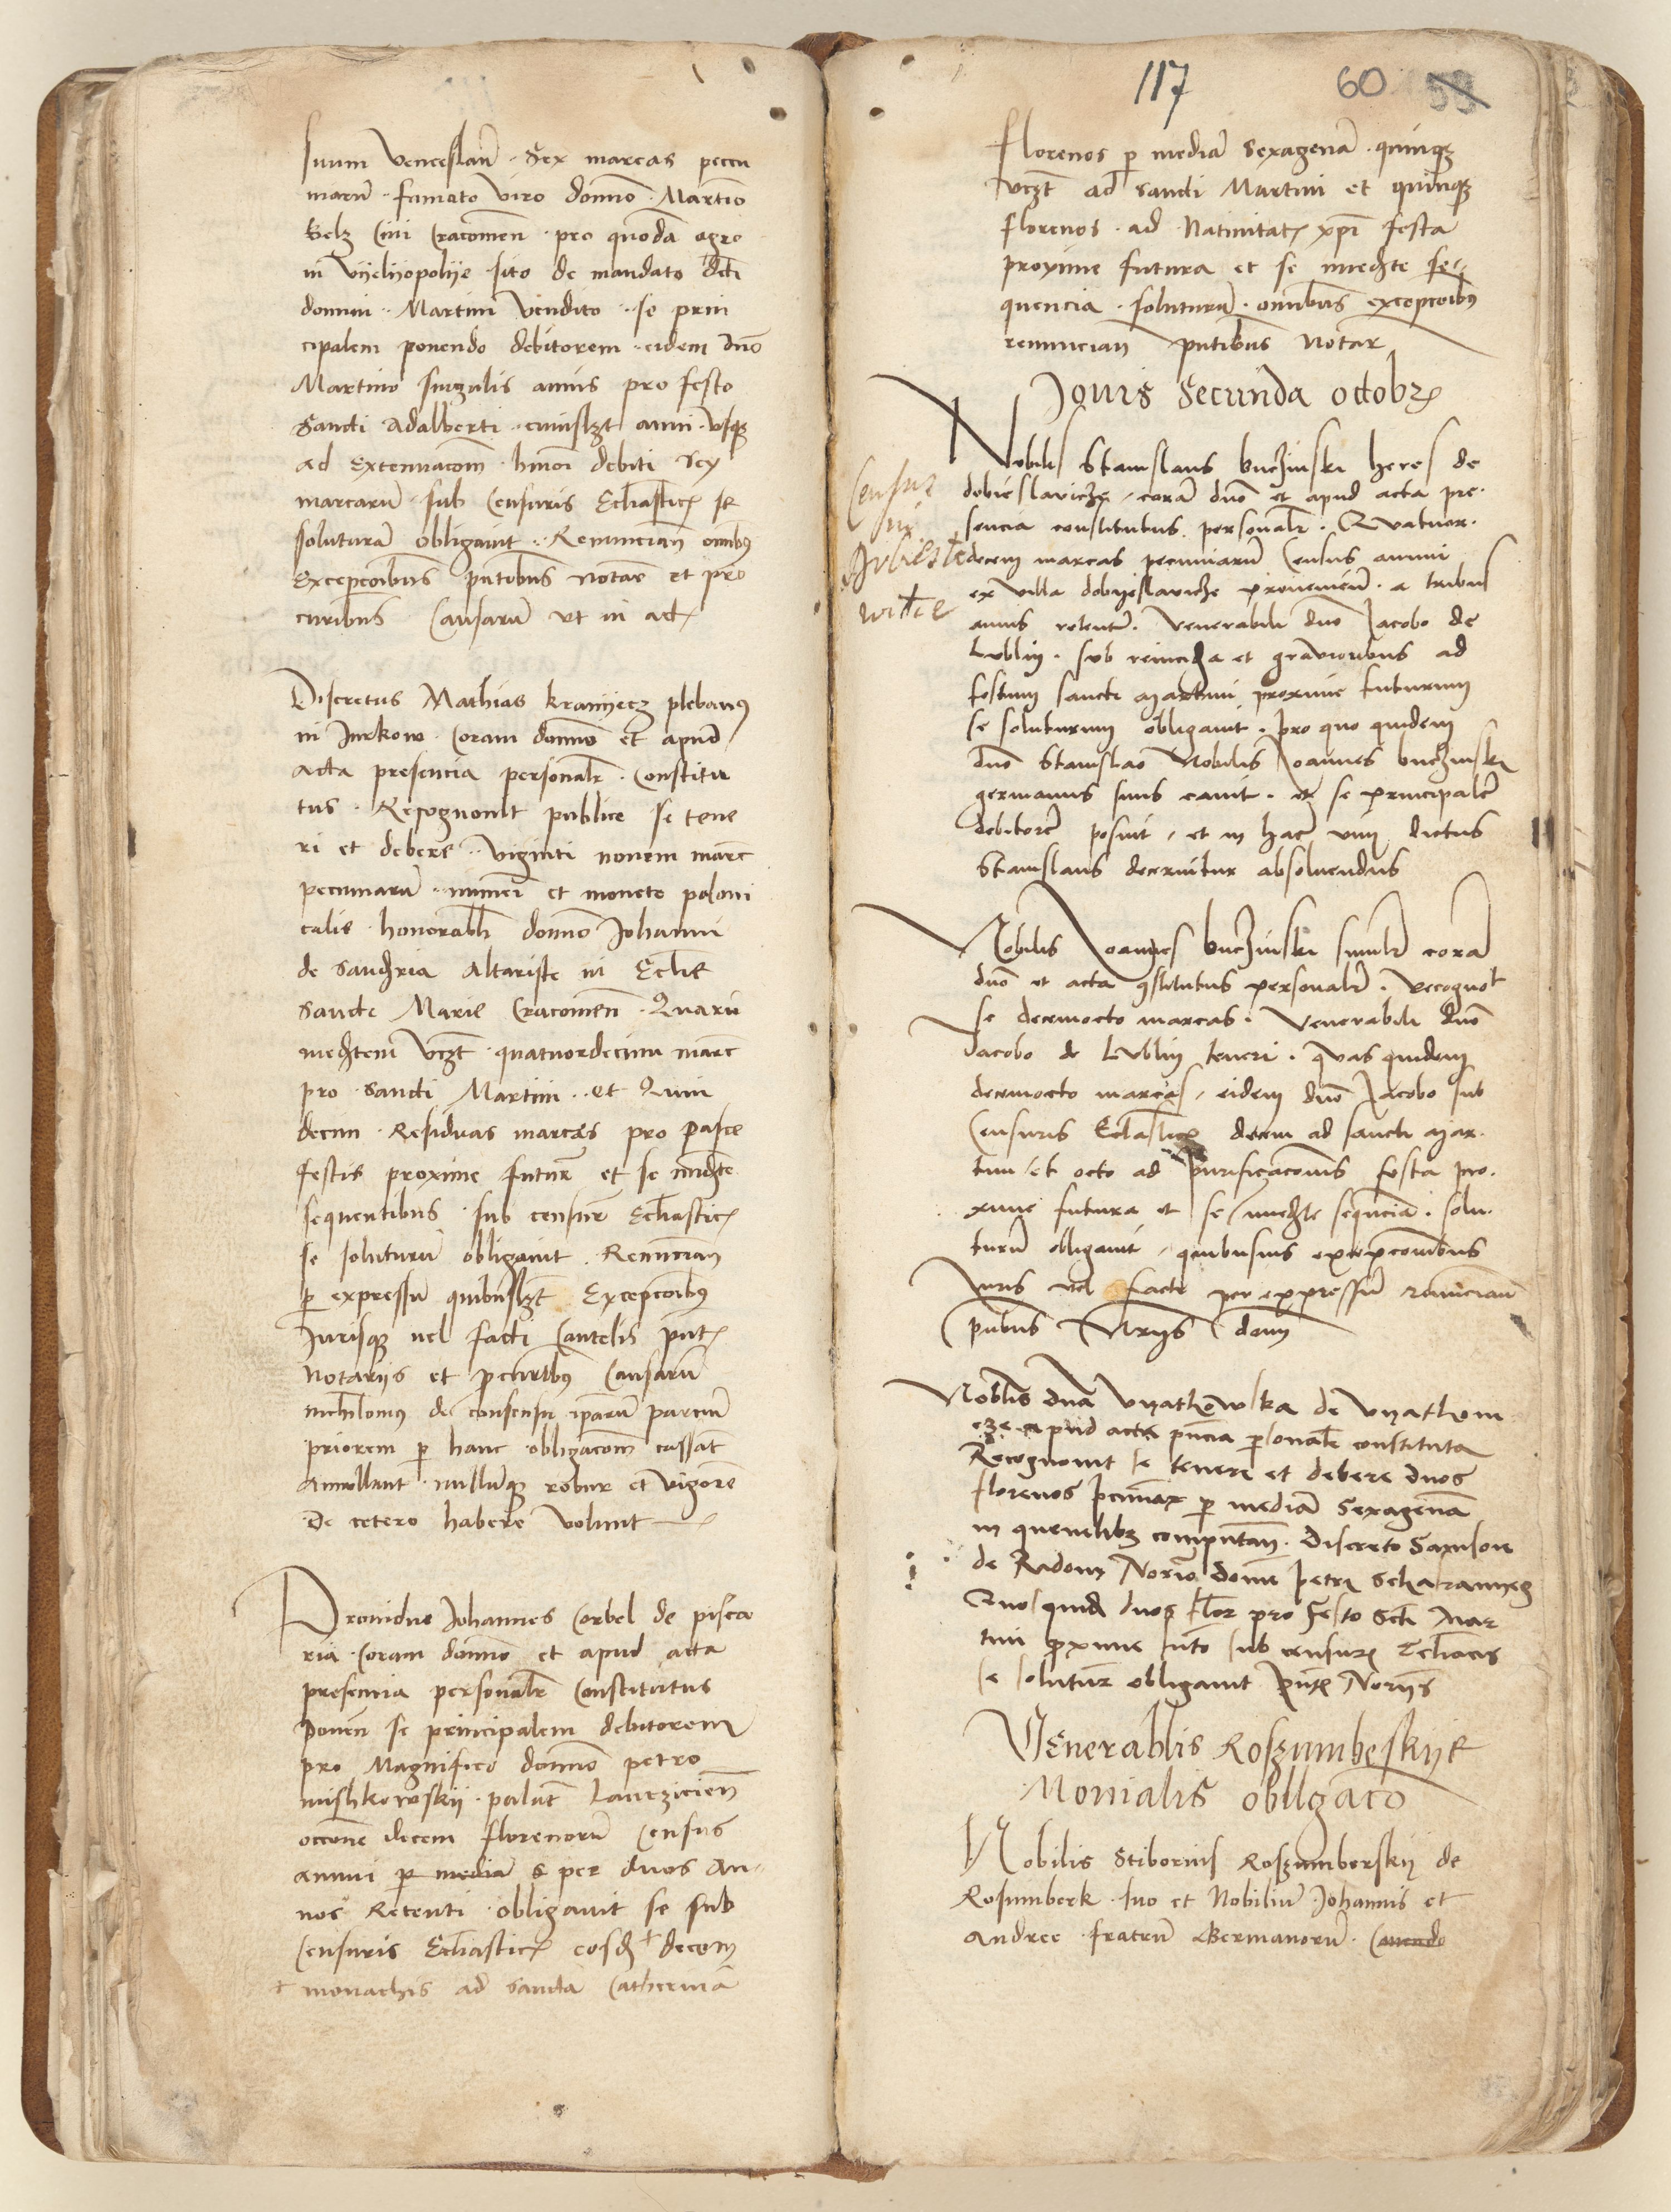 suum Venceslaum · Sex marcas pecu
niarum · famato viro domino Martino
Belz Civi Cracovien · pro quodam agro
in Vyelyopolye sito de mandato dicti
domini Martini vendito · se prin
cipalem ponendo debitorem · eidem dno
Martino singulis annis pro festo
Sancti Adalberti cuiuslzt anni usqz
ad extenuacom hmoi debiti sex
marcarum sub Censuris Ecclasticis se
soluturum obligavit · Renuncian omnibus
Excepcoibus pntibus notariis et pro
curibus Causarum ut in act
Discretus Mathias kramyecz plebanus
in Jurkow · Coram domino et apud
acta presencia personalr · Constitu
tus · Recognovit publice se tene
ri et debere · viginti novem marc
pecuniarum · numeri et monete poloni
calis · honorabli domino Johanni
de Sandzria Altariste in Ecclie
Sancte Marie Cracovien · Quarum
medietem vczt quatuordecim marc
pro Sancti Martini · et Quin
decim · Residuas marcas pro Pasce
festis proxime futur et se imedte
sequentibus · sub censur Ecclastic
se soluturum obligavit · Renuncian
p expressum quibuslzt Excepcoibus
Jurisqz vel facti Cautelis pnt
Notariis et pcuribus Causarum
nichilomus de consensu iparum parcium
priorem p hanc obligacom cassant
Annullant nullumqz robur et vigorem
De cetero habere volunt
Providus Johannes Corbel de pisca
ria · Coram domino et apud acta
presencia personalr Constitutus
ponen se principalem debitorem
pro Magnifico domino petro
mishkowskij · palat Lanczicien
occone decem florenorum Census
annui p media s per duos An
nos Retenti obligavit se sub
Censuris Ecclastic eosd + decem
+ monachis ad Sanctam Catherinam
117 60 59
florenos p mediam Sexagenam · quinqz
vczt ad Sancti Martini et quinqz
florenos · ad Nativitat xpi festa
proxime futura et se imedte se
quencia · soluturum · omnibus excepcoibus
renuncian pntibus Notar
Jovis Secunda octobr
Nobilis Stanislaus buczinski heres de
dobieslavicze · coram dno et apud acta pre
sencia constitutus personalr · Quatuor
decem marcas pecuniarum Census annui
ex villa dobyeslavicze provenien · a tribus
annis retent · Venerabili dno Jacobo de
Lublin · sub reincida et gravioribus ad
festum sancti Martini proxime futurum
se soluturum obligavit · pro quo quidem
dno Stanislao Nobilis Joannes buczinski
germanus suus cavit · et se principalem
debitorem posuit · et in hac vim dictus
Stanislaus decernitur absolvendus
Census
in

Nobilis Joannes buczinski similr coram
dno et acta constitutus personalr · recognovit
se decemocto marcas · Venerabili dno
Jacobo de Lublin teneri · quas quidem
decemocto marcas · eidem dno Jacobo sub
Censuris Ecclastic decem ad sancti Mar
tini et octo ad purificaconis festa pro
xime futura et se imedte sequencia · solu
turum obligavit · quibusvis excepconibus
Juris vel facti per expressum renuncian
pntibus

Nobilis dna
apud acta pncia psonalr constituta
Recognovit se teneri et debere duos
florenos pecuniar p mediam Sexagenam
in quemlibz computan · Discreto Samson
de Radom Norio domini petri
Quosquid duos flor pro festo Scti Mar
tini proxime futo sub censuris Ecclacis
se solutur obligavit pnt Noriis
Venerabilis Roszumbeskye
Monialis obligaco
Nobilis Stiborius Roszumberskij de
Rosumberk suo et Nobilium Johannis et
Andree · fratrum Germanorum ·